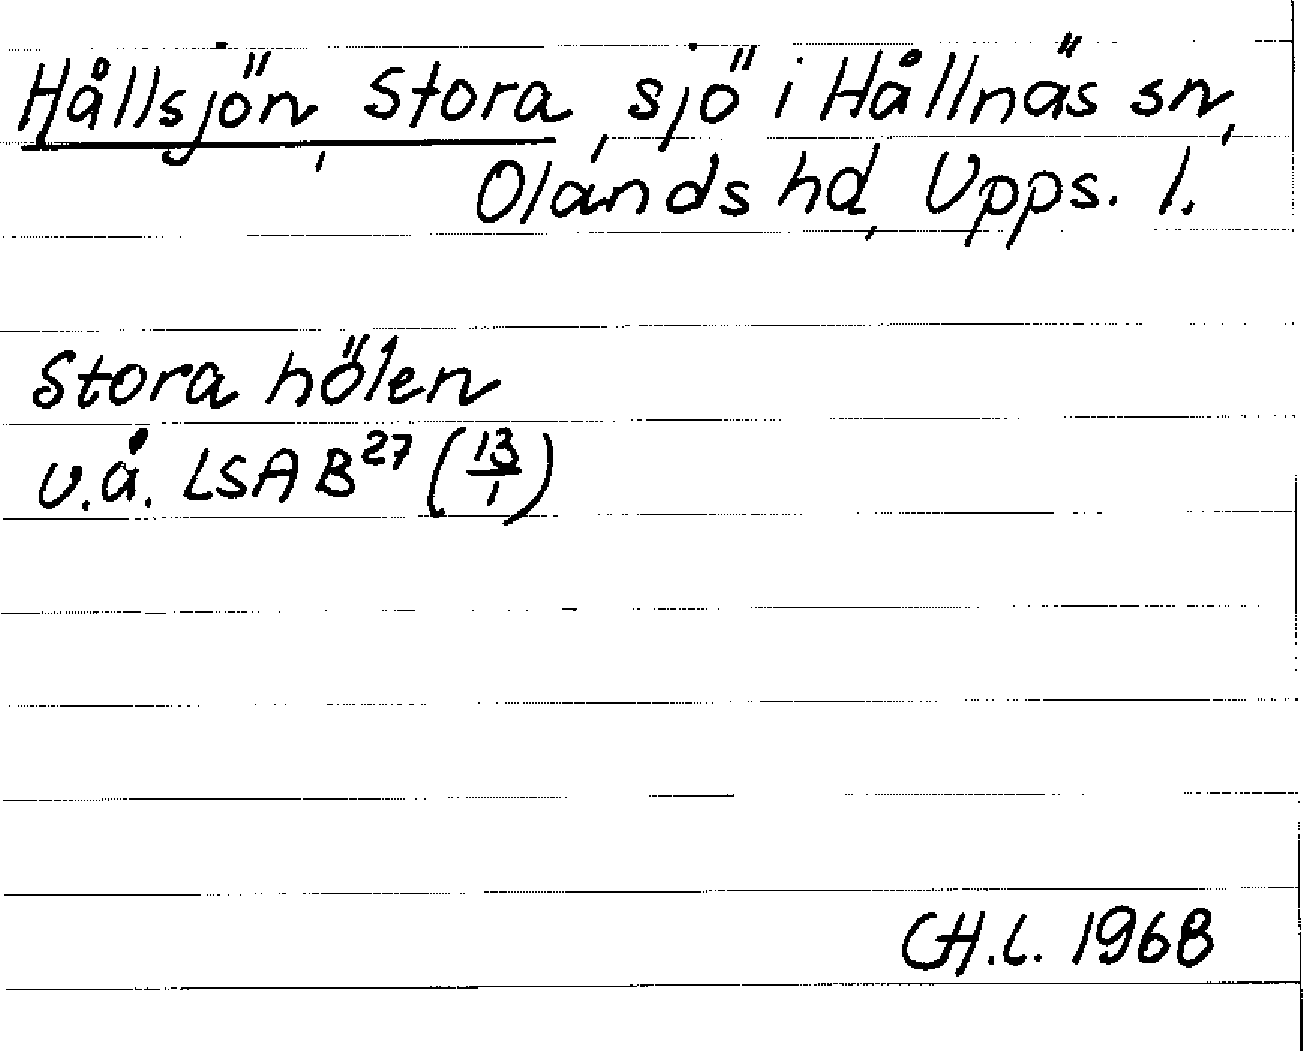 Hållsjön, Stora, sjö i Hållnäs sn,
Olands hd, Upps. l.
Stora hölen
u.å. LSA B²⁷ (13/1)
CH.L. 1968